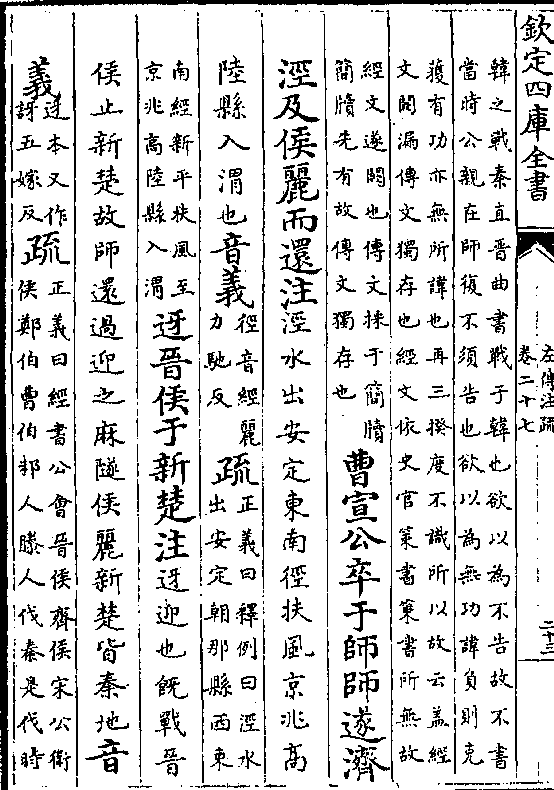 欽定四庫全書
左傳注疏
卷二十七
二十三
韓之戰秦直晉曲書戰于韓也欲以為不告故不書
當時公親在師復不須告也欲以為無功諱負則克
獲有功亦無所諱也再三揆度不識所以故云蓋經
文闕漏傳文獨存也經文依史官策書策書所無故
經文遂闕也傳文採于簡牘
簡牘先有故傳文獨存也
曹宣公卒于師師遂濟
涇及侯麗而還注涇水出安定東南徑扶風京兆高
陸縣入渭也音義
徑音經麗
力馳反
疏
正義曰釋例曰涇水
出安定朝那縣西東
南經新平扶風至
京兆高陸縣入渭
迓晉侯于新楚注迓迎也既戰晉
侯止新楚故師還過迎之麻隧侯麗新楚皆秦地音
義
迓本又作
訝五嫁反
疏
正義曰經書公會晉侯齊侯宋公衛
侯鄭伯曹伯邾人滕人伐秦是伐時